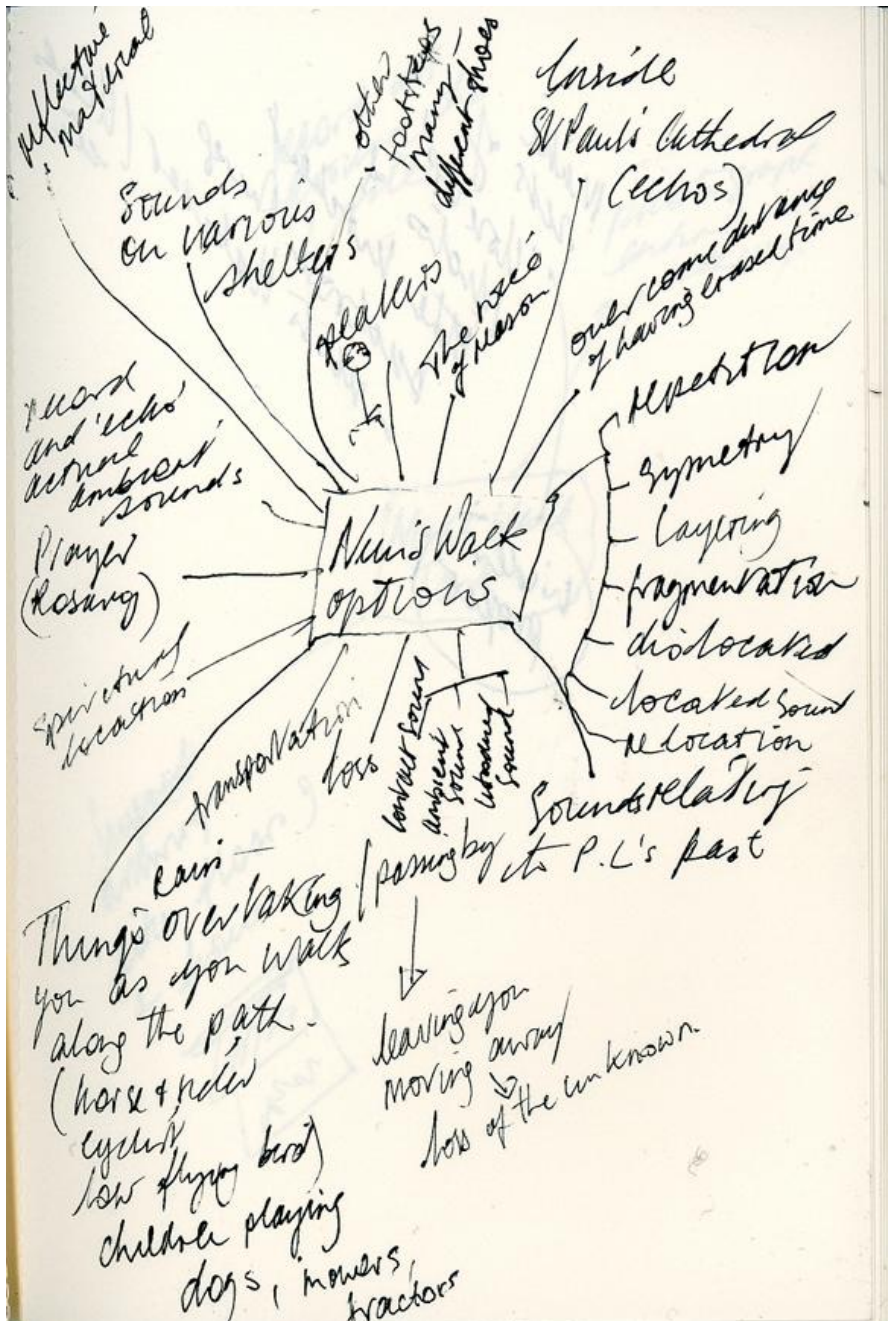 reflective
material
Sounds
on various
shelters
other
footsteps
many —
different shoes
Inside
St Paul's Cathedral
(echos)
speakers
The voice
of reason
over come distance
of having erased time
record
and 'echo'
actual
ambient
sounds
Prayer
(Rosary)
Spiritual
location
Nun's Walk
options
repetition
Symetry
Layering
fragmentation
dislocated
located sound
relocation
transportation
loss
contact sound
ambient
sound
sound
Sounds relating
to P.L's past
rain —
Things overtaking / passing by
you as you walk
along the path.
(horse & rider
cyclist
low flying bird)
children playing
dogs, mowers,
tractors
leaving you
moving away
loss of the unknown.